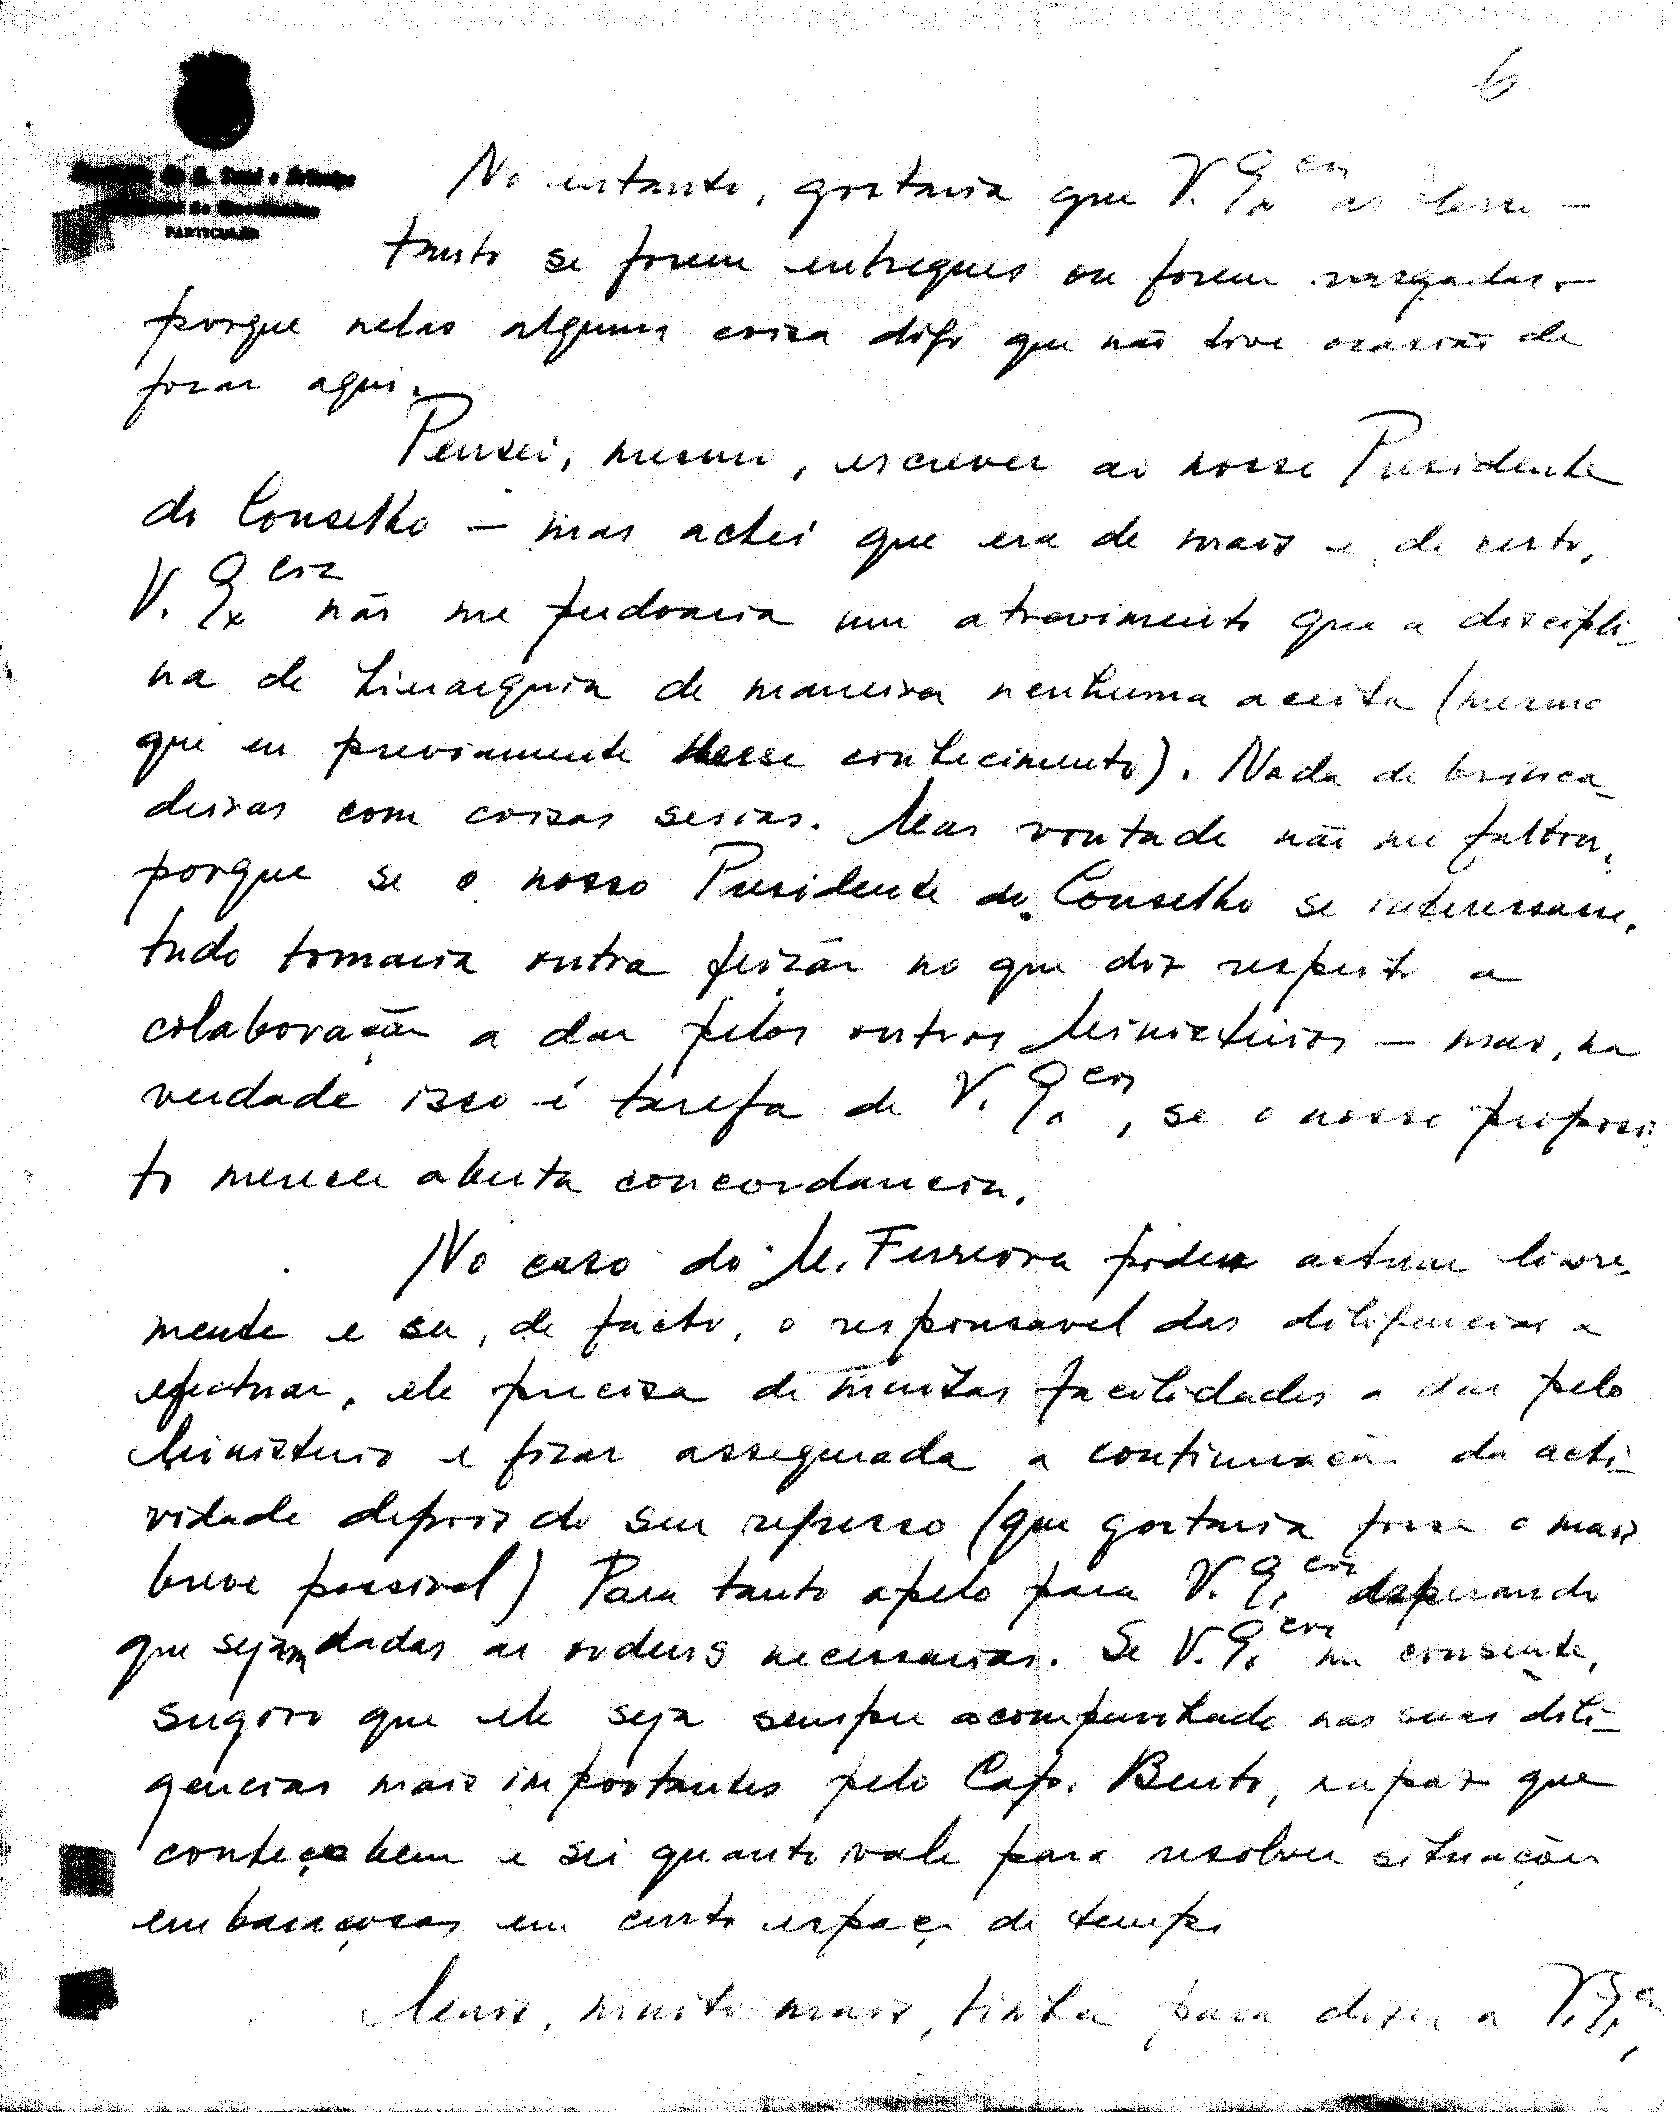 6
S. Tomé e Príncipe
PARTICULAR
No entanto, gostaria que V. Exª cia as lesse –
tanto se forem entregues ou forem rasgadas –
porque nelas alguma coisa digo que não tive ocasião de
focar aqui.
Pensei, mesmo, escrever ao nosso Presidente
do Conselho – mas achei que era de mais e, de certo,
V. Exª cia não me perdoaria um atrevimento que a discipli-
na de hierarquia de maneira nenhuma aceita (mesmo
que eu previamente desse conhecimento). Nada de brinca-
deiras com coisas serias. Mas vontade não me faltou,
porque se o nosso Presidente do Conselho se interessasse,
tudo tomaria outra feição no que diz respeito a
colaboração a dar pelos outros Ministerios – mas, na
verdade isso é tarefa de V. Ex. cia, se o nosso proposi-
to merecer aberta concordancia.
No caso do M. Ferreira poder actuar livre-
mente e ser, de facto, o responsavel das diligencias a
efectuar, ele precisa de muitas facilidades a dar pelo
Ministerio e ficar assegurada a continuação da acti-
vidade depois do seu regresso (que gostaria fosse o mais
breve possivel) Para tanto apelo para V. Ex. cia esperando
que sejam dadas as ordens necessarias. Se V. Ex. cia me consente,
sugiro que ele seja sempre acompanhado nas suas dili-
gencias mais importantes pelo Cap. Bento, rapaz que
conheço bem e sei quanto vale para resolver situações
embaraçosas em curto espaço de tempo
Mais, muito mais, tinha para dizer a V. Ex. cia,